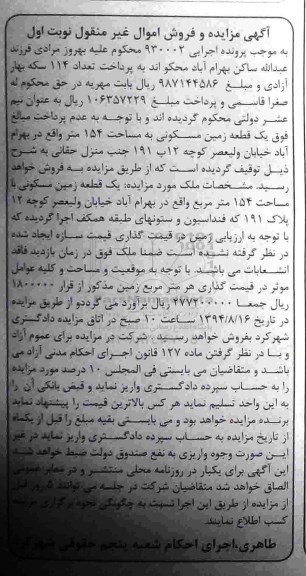 آگهی مزایده و فروش اموال غیر منقول نوبت اول
به موجب پرونده اجرایی ۹۳۰۰۰۲ محکوم علیه بهروز مرادی فرزند
عبدالله ساکن بهرام آباد محکو اند به پرداخت تعداد ۱۱۴ سکه بهار
آزادی و مبلغ ۹۸۷۱۴۴۵۸۶ ریال بابت مهریه در حق محکوم له
صغرا قاسمی و پرداخت مبلغ ۱۰۶۳۵۷۲۲۹ ریال به عنوان نیم
عشر دولتی محکوم گردیده اند و با توجه به عدم پرداخت مبالغ
فوق یک قطعه زمین مسکونی به مساحت ۱۵۴ متر واقع در بهرام
آباد خیابان ولیعصر کوچه ۱۲ب ۱۹۱ جنب منزل حقانی به شرح
ذیل توقیف گردیده است که از طریق مزایده به فروش خواهد
رسید. مشخصات ملک مورد مزایده: یک قطعه زمین مسکونی با
مساحت ۱۵۴ متر مربع واقع در بهرام آباد خیابان ولیعصر کوچه ۱۲
پلاک ۱۹۱ که فنداسیون و ستونهای طبقه همکف اجرا گردیده که
با توجه به ارزیابی زمین در قیمت گذاری قیمت سازه ایجاد شده
در نظر گرفته نشده است ضمنا ملک فوق در زمان بازدید فاقد
انشعابات می باشد. با توجه به موقعیت و مساحت و کلیه عوامل
موثر در قیمت گذاری هر متر مربع زمین مذکور از قرار ۱۸۰۰۰۰۰
ریال جمعا ۲۷۷۲۰۰۰۰۰ ریال برآورد می گردد و از طریق مزایده
در تاریخ ۱۳۹۴/۸/۱۶ ساعت ۱۰ صبح در اتاق مزایده دادگستری
شهرکرد بفروش خواهد رسید. شرکت در مزایده برای عموم آزاد
و با در نظر گرفتن ماده ۱۲۷ قانون اجرای احکام مدنی آزاد می
باشد و متقاضیان می بایستی فی المجلس ۱۰ درصد مورد مزایده
را به حساب سپرده دادگستری واریز نماید و قبض بانکی آن را
به این واحد تسلیم نماید هر کس بالاترین قیمت را پیشنهاد نماید
برنده مزایده خواهد بود و می بایستی بقیه مبلغ را قبل از یکماه
از تاریخ مزایده به حساب سپرده دادگستری واریز نماید در غیر
این صورت وجوه واریزی به نفع صندوق دولت ضبط خواهد شد.
این آگهی برای یکبار در روزنامه محلی منتشر و در معابر عمومی
الصاق خواهد شد متقاضیان شرکت در جلسه می توانند ۵ روز قبل
از مزایده از طریق این اجرا نسبت به چگونگی نحوه برگزاری مزایده
کسب اطلاع نمایند.
طاهری، اجرای احکام شعبه پنجم حقوقی شهرکرد